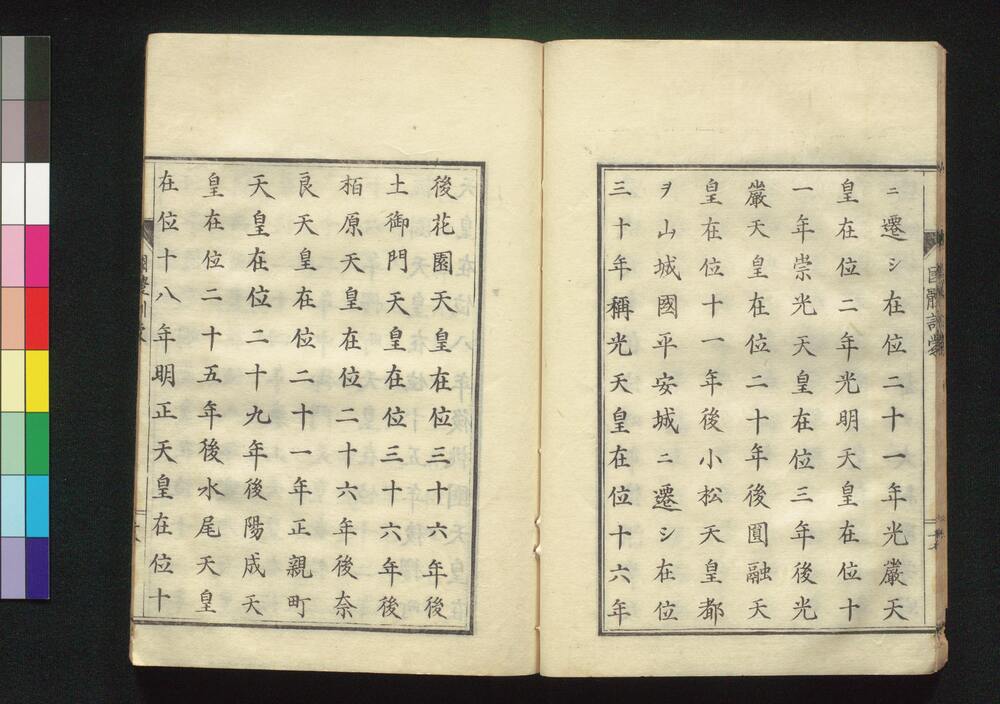 ニ遷シ在位二十一年光嚴天
皇在位二年光明天皇在位十
一年崇光天皇在位三年後光
嚴天皇在位二十年後圓融天
皇在位十一年後小松天皇都
ヲ山城國平安城ニ遷シ在位
三十年稱光天皇在位十六年
後花園天皇在位三十六年後
土御門天皇在位三十六年後
栢原天皇在位二十六年後奈
良天皇在位二十一年正親町
天皇在位二十九年後陽成天
皇在位二十五年後水尾天皇
在位十八年明正天皇在位十
國體訓蒙